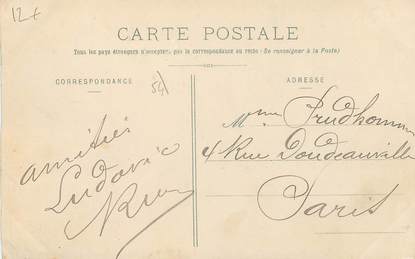 12+
CARTE POSTALE
Tous les pays étrangers n'acceptent pas la correspondance au recto (Se renseigner à la Poste)
CORRESPONDANCE
ADRESSE
54
Mme Prudhomme
4 Rue Doudeauville
Paris
amitiés
Ludovic